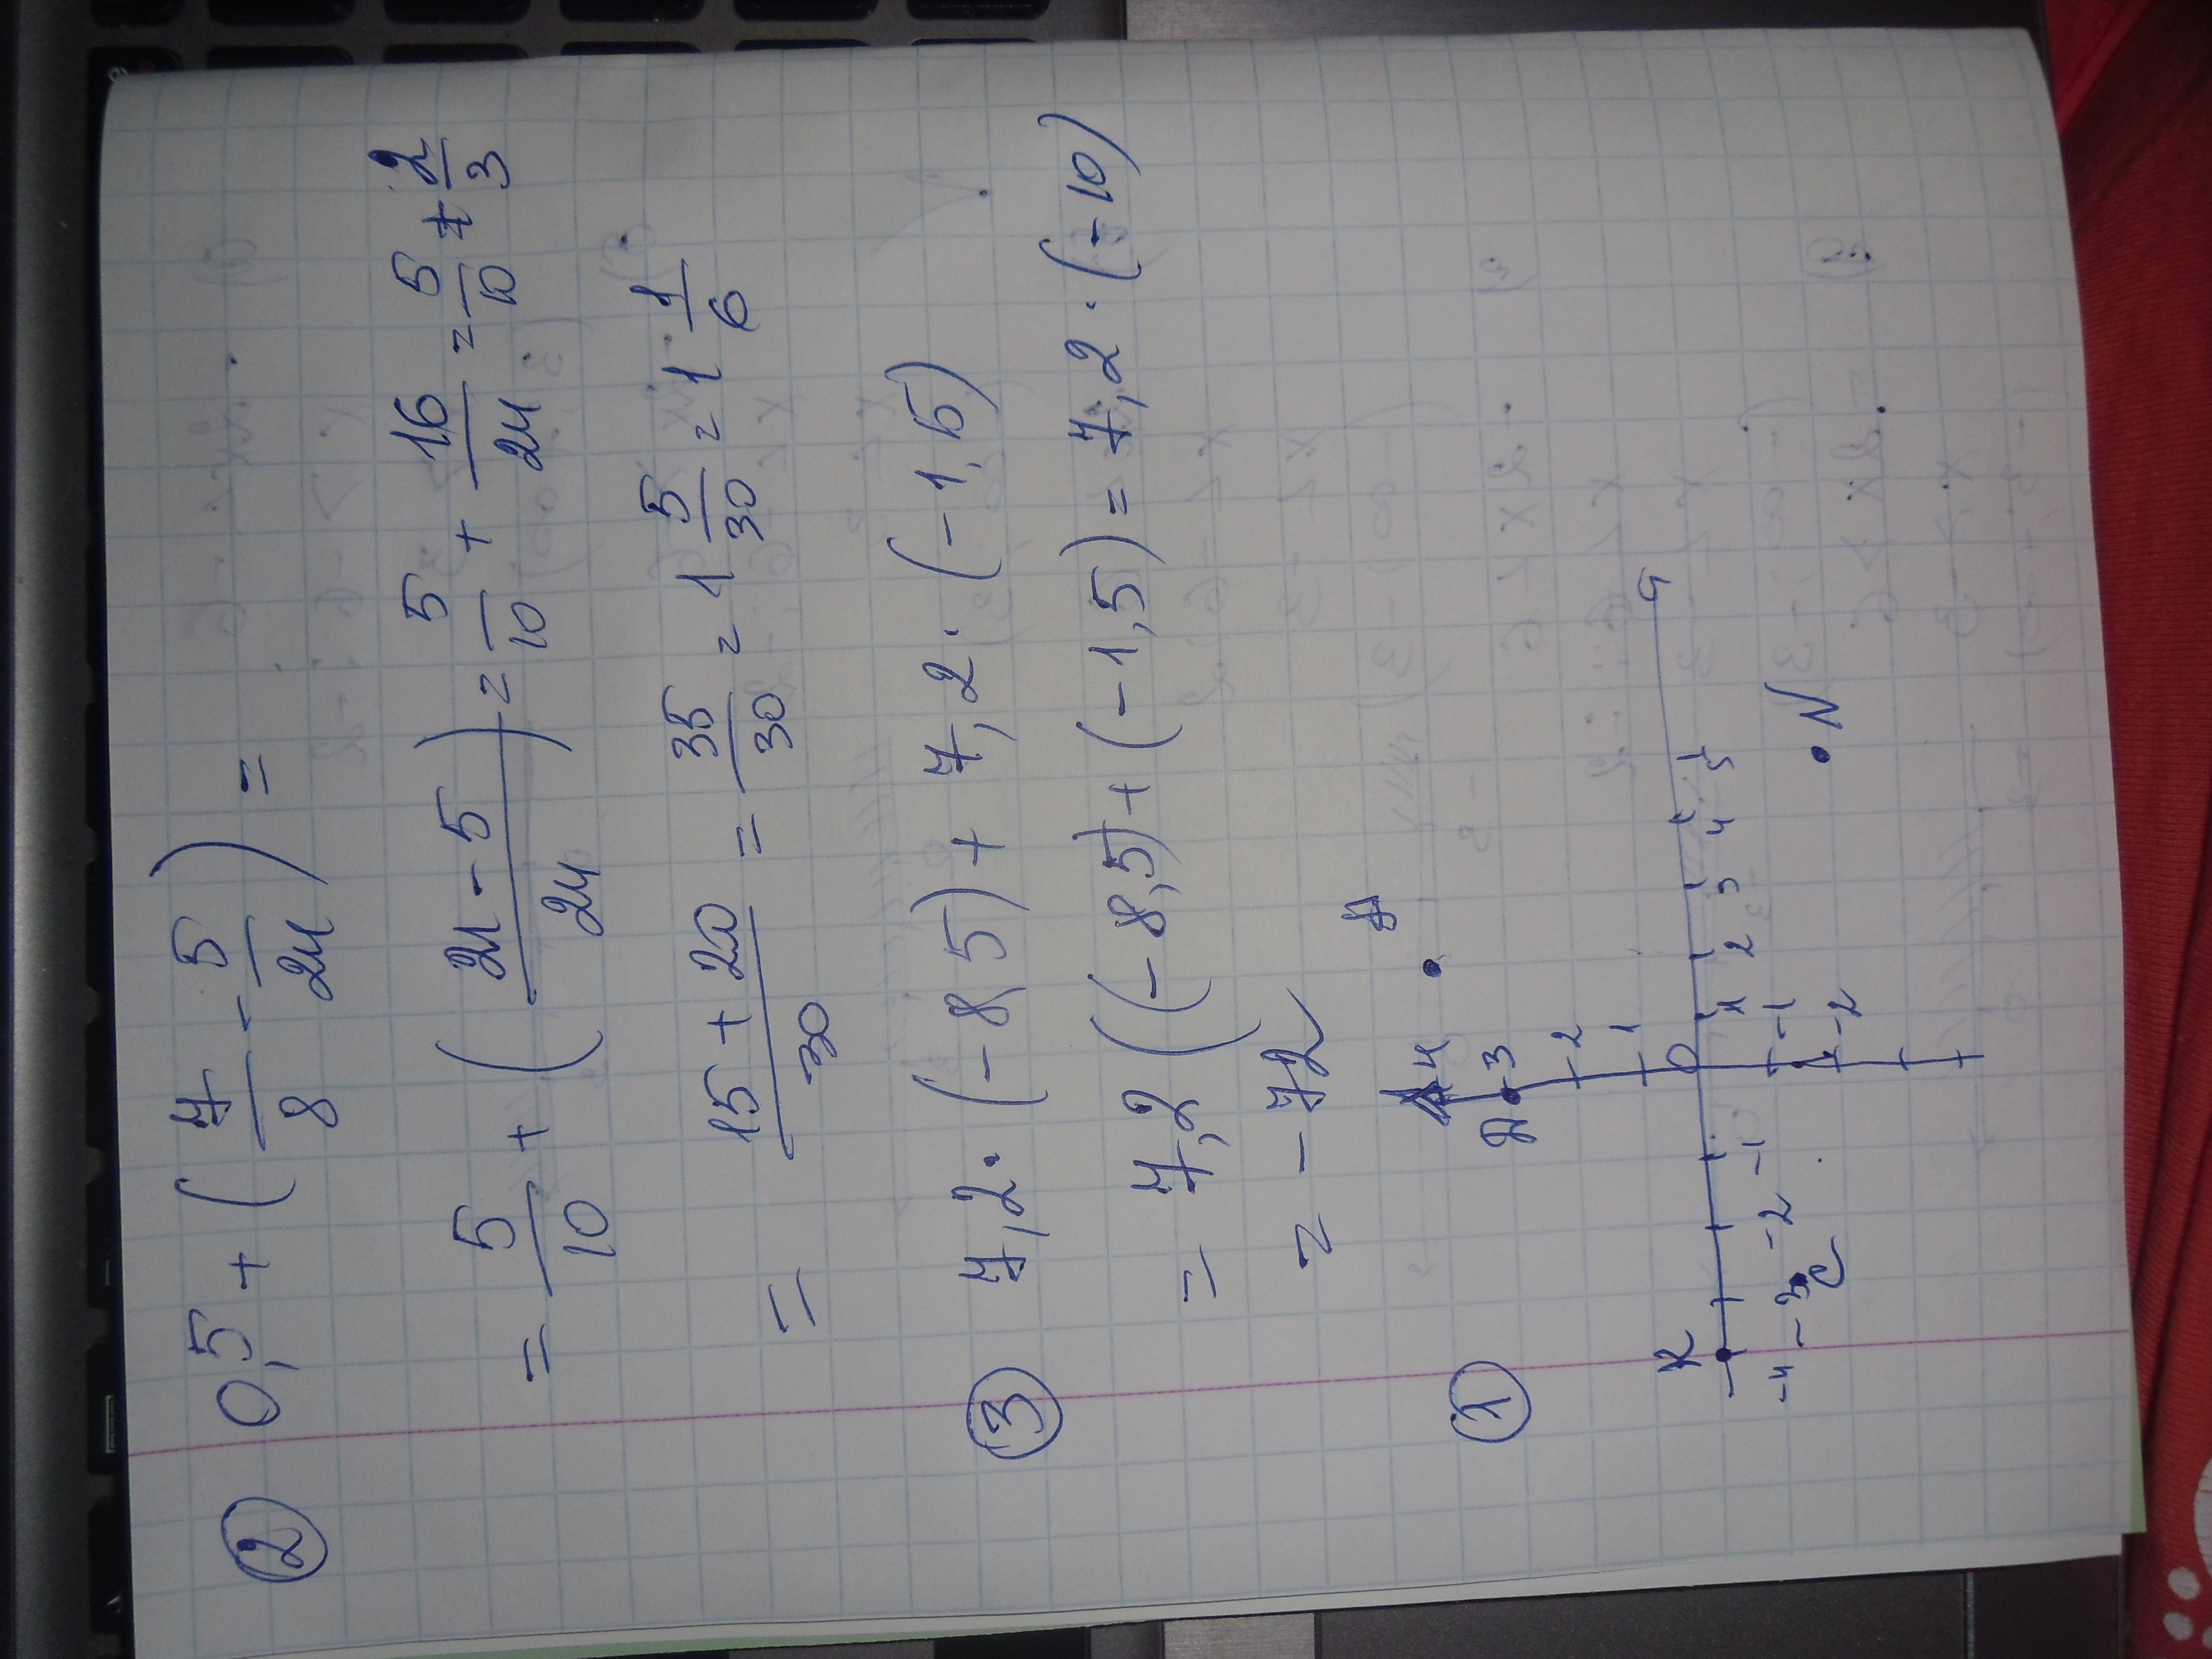 ② 0,5 + (7/8 - 5/24) =
= 5/10 + (21 - 5/24) = 5/10 + 16/24 = 5/10 + 2/3
= 15 + 20/30 = 35/30 = 1 5/30 = 1 1/6
③ 7,2 · (-8,5) + 7,2 · (-1,5)
= 7,2 ((-8,5) + (-1,5) = 7,2 · (-10)
= -72
①
4
3
2
1
K 0
-4 -3 -2 -1 1 2 3 4 5
-1
-2
C N